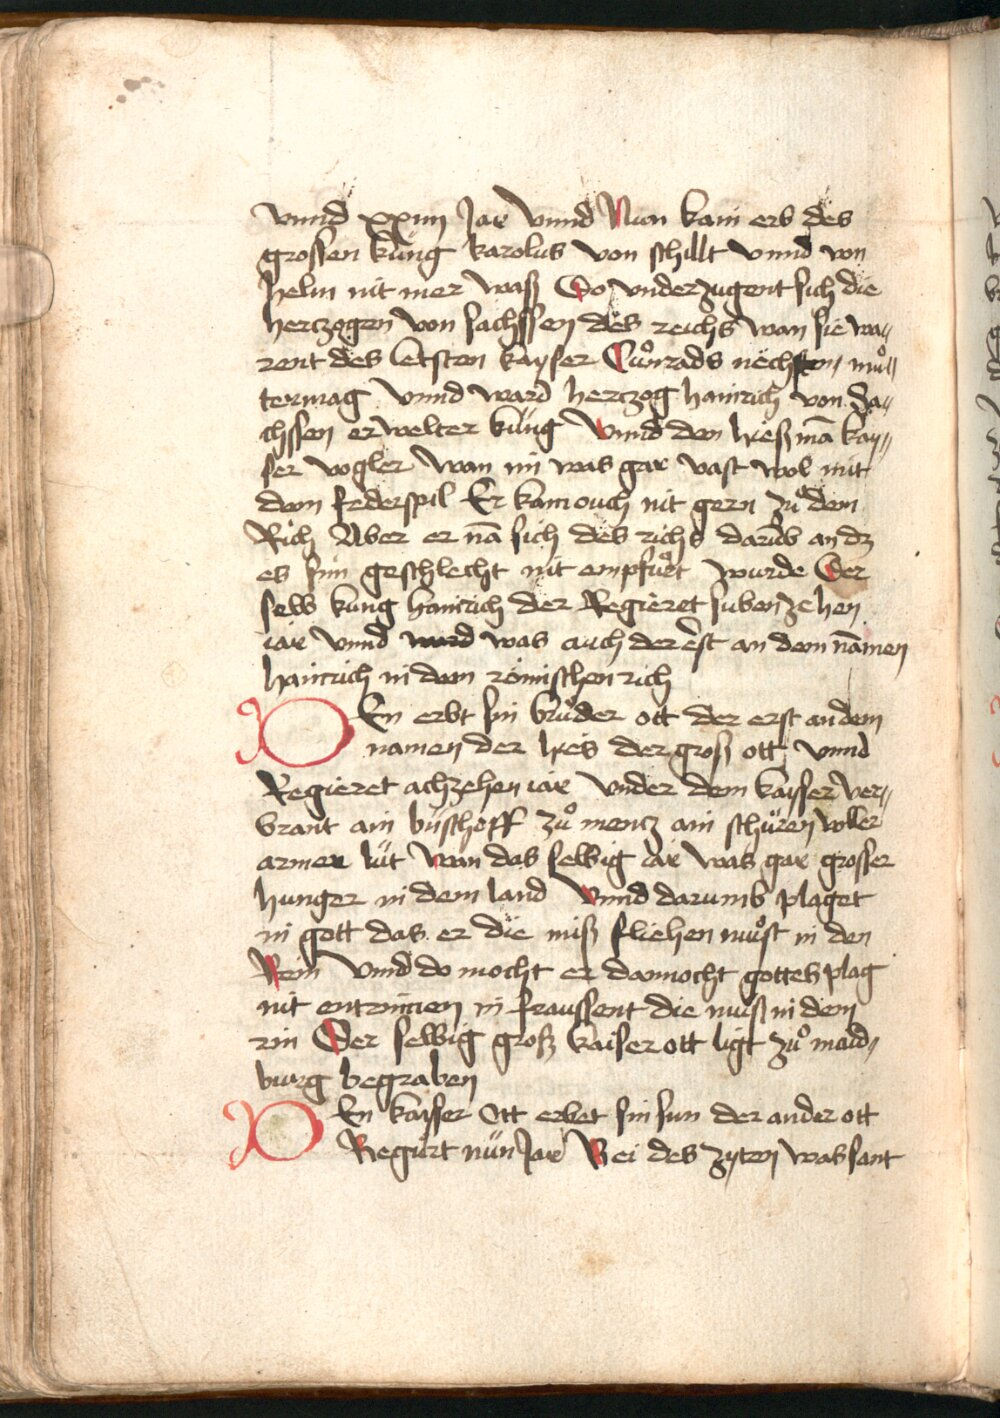 vnnd xxiiij Jar vnnd Nun kain erb des
grossen küng karolus von schillt vnnd von
helm nit mer waß Do vnderzugent sich die
hertzogen von sachssen des reichs wan sie wa„
rent des letsten kayser Cuͦnrads nëchsten muͦ„
termag vnnd ward hertzog hainrich von Sa„
chssen erwelter küng vnnd den hieß mā kay„
ser vogler wan im was gar vast wol mit
dem federspil Er kam ouch nit gern zuͦ dem
Rich Aber er nā sich des richs darūb an dz
es sim geschlecht nit empfuͦrt wurde Der
selb kung hainrich der Regieret subenzehen
iar vnnd was auch der erst an dem namen
hainrich in dem römischen rich
DEn erbt sin bruͦder ott der erst an dem
namen der hies der groß ott vnnd
Regieret achzehen iar vnder dem kaiser ver„
brant ain büschoff zuͦ mentz ain schüren voller
armer lüt wan das selbig iar was gar grosser
hunger in dem land vnnd darumb plaget
in gott das er die miß fliehen muͦst in den
Rein vnnd do mocht er dannocht gottes plag
nit entrinnen in fraussent die muß in dem
rin Der selbig groß kaiser ott ligt zuͦ maid„
burg begraben
DEn kayser Ott erbet sin sun der ander ott
Regiirt nün Jar Bei des zyten was sant